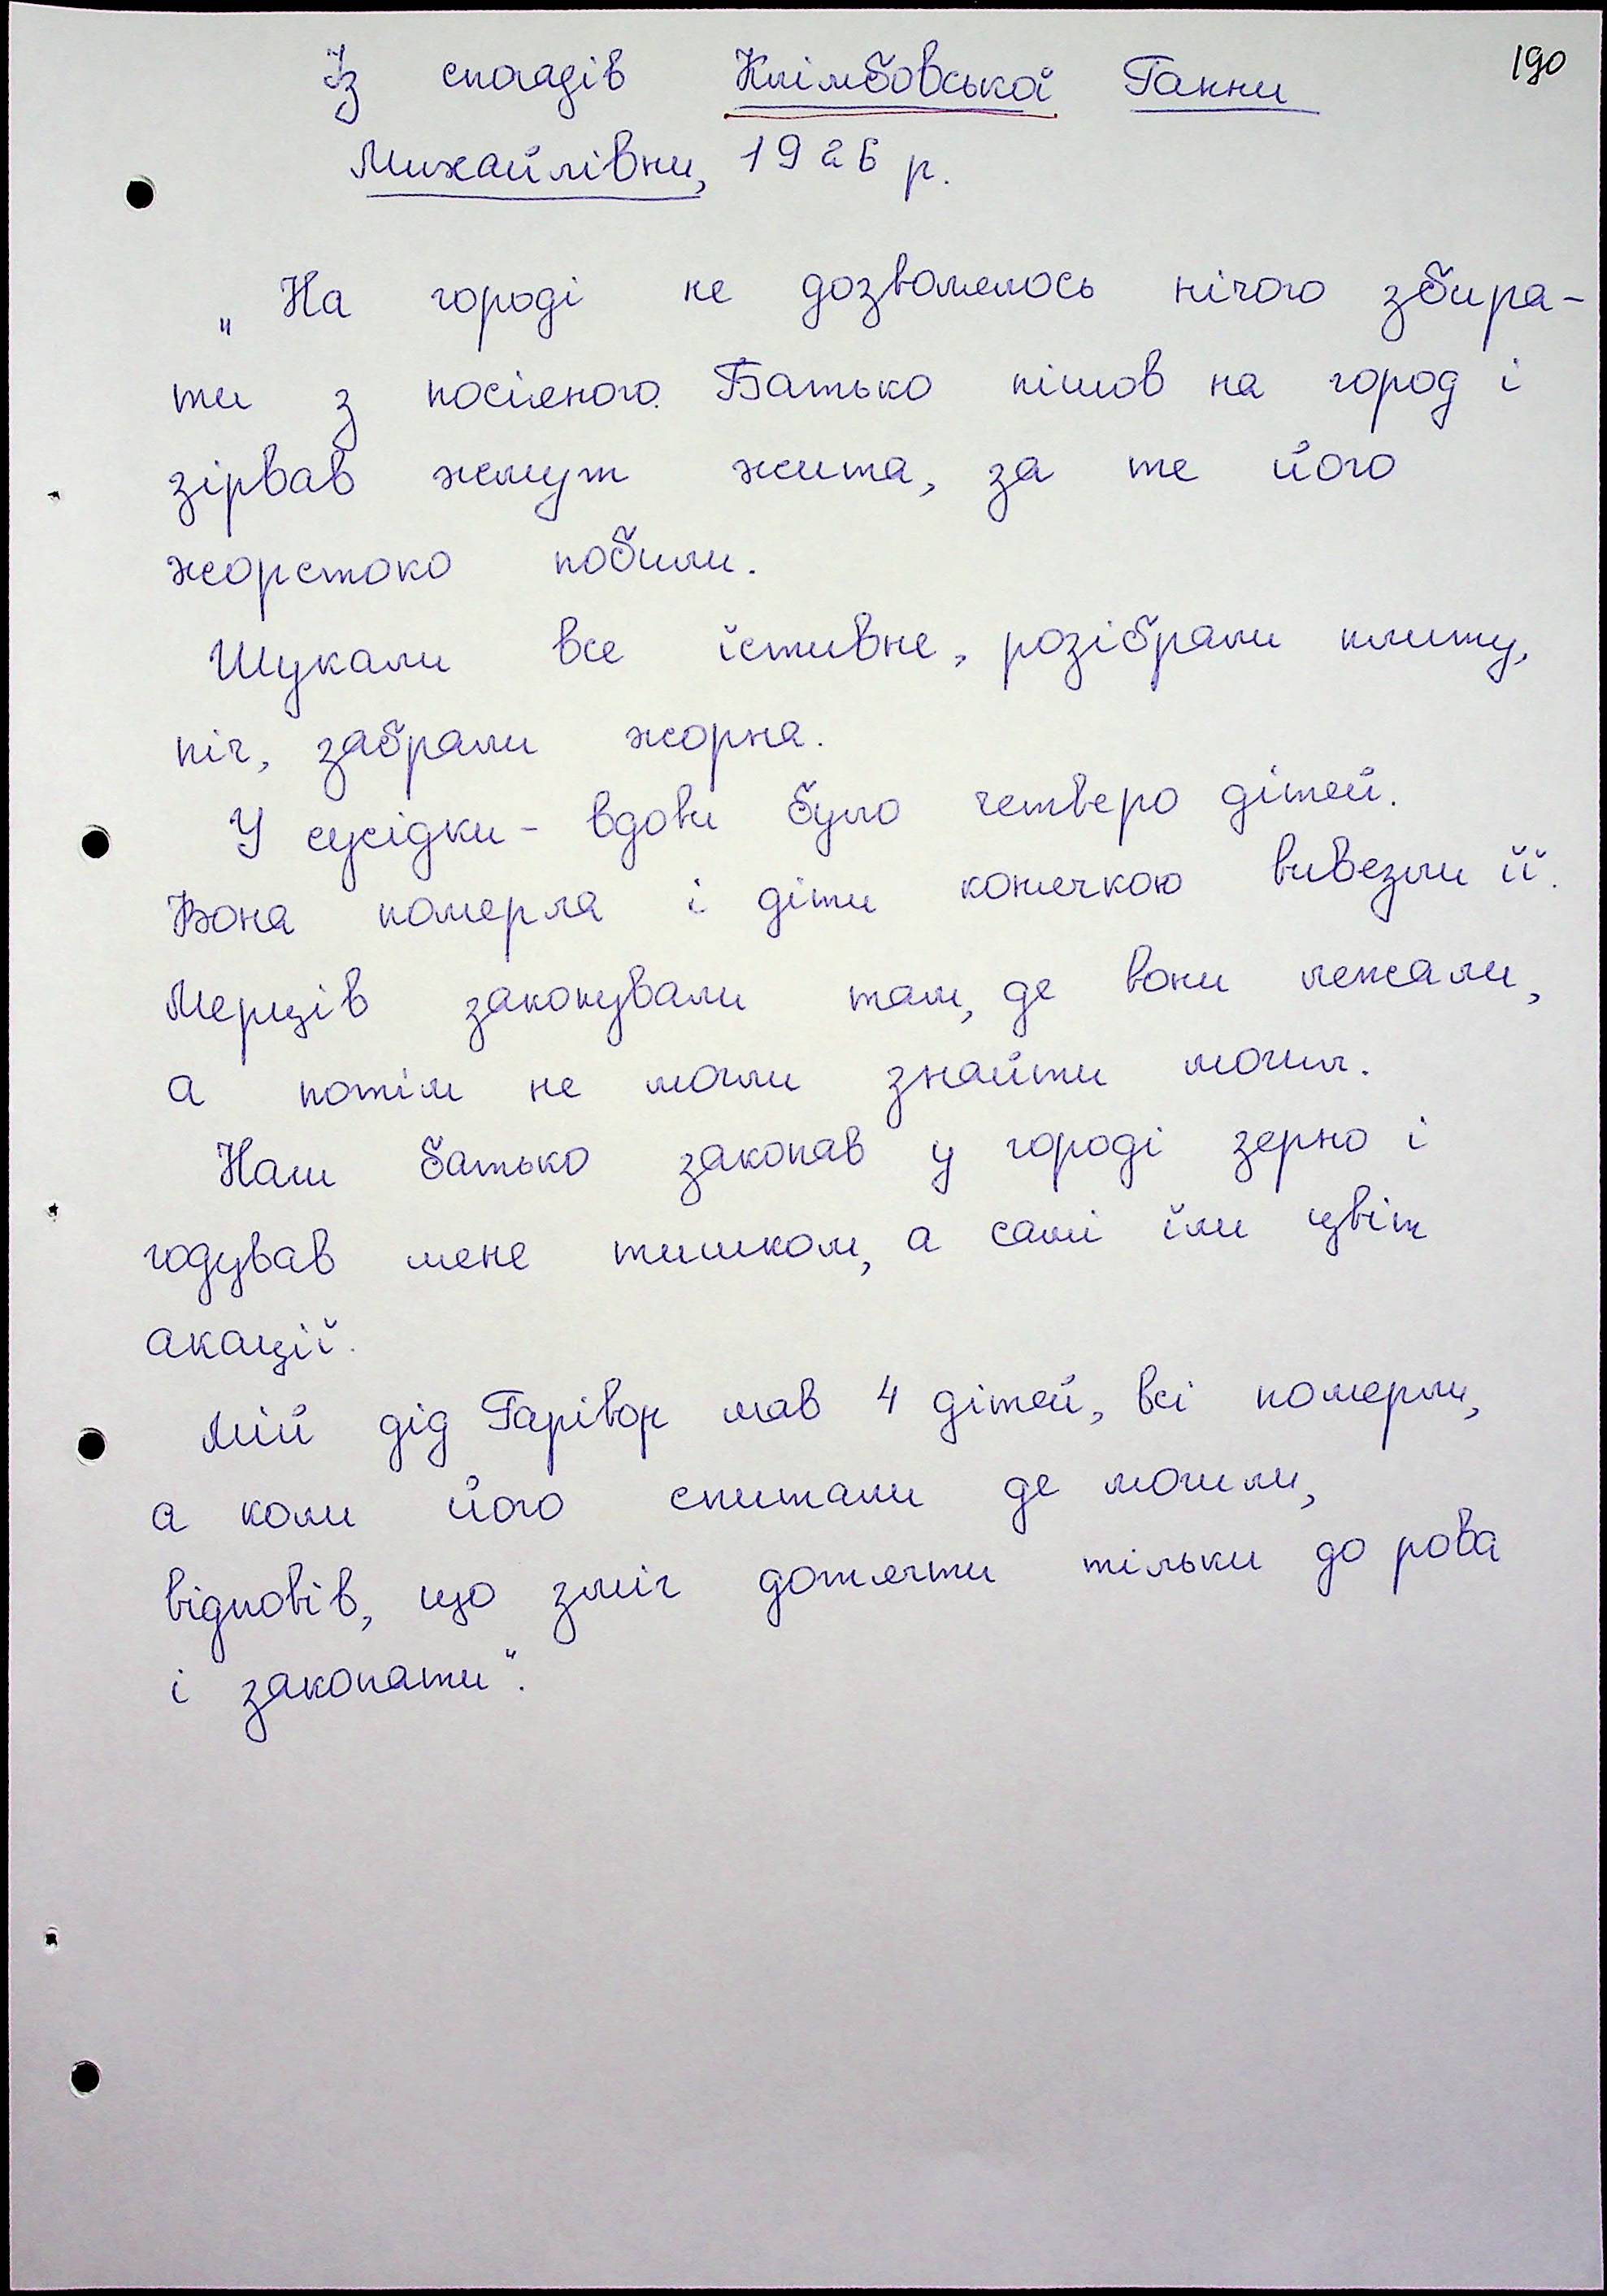 190
Із спогадів Климбовської Ганни
Михайлівни, 1926 р.
„На городі не дозволялось нічого збира-
ти з посіяного. Батько пішов на город і
зірвав жмут жита, за те його
жорстоко побили.
Шукали все їстивне, розібрали плиту,
піч, забрали жорна.
У сусідки - вдови було четверо дітей.
Вона померла і діти конячкою вивезли її.
Мерців закопували там, де вони лежали,
а потім не могли знайти могил.
Наш батько закопав у городі зерно і
годував мене тишком, а самі їли цвіт
акації.
Мій дід Гарівон мав 4 дітей, всі померли,
а коли його спитали де могили,
відповів, що зміг дотягти тільки до рова
і закопати".